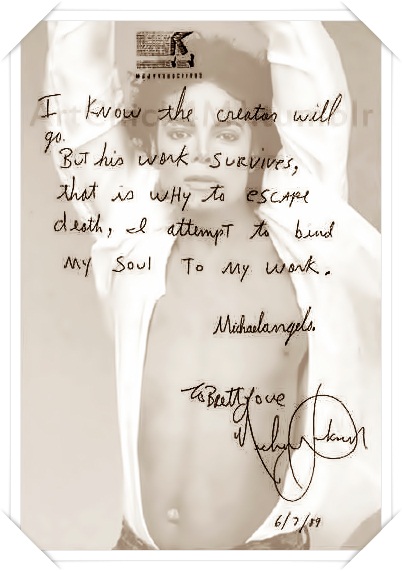 MJJ PRODUCTIONS
I Know the creator will
go.
But his work SURVIVES,
that is wHy to ESCAPE
death, I attempt to bind
MY Soul To My work.
Michaelangelo.
To Brett Love
Michael Jackson
6/7/89